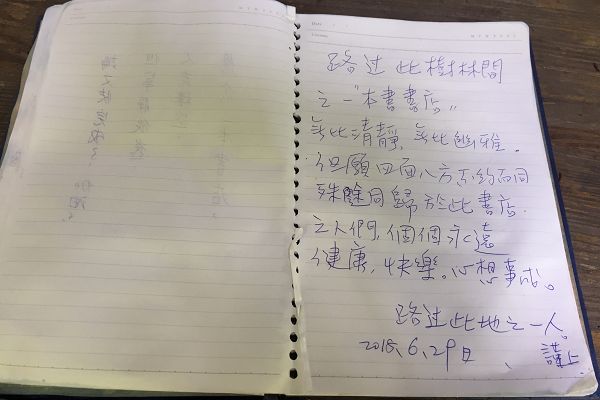 Date
路过此樹林間
之一"本書書店"
無比清靜、無比幽雅.
但願四面八方不約而同
殊途同歸於此書店.
之人們,個個永遠
健康,快樂。心想事成。
路过此地之一人。
2018、6、29日、謹上.